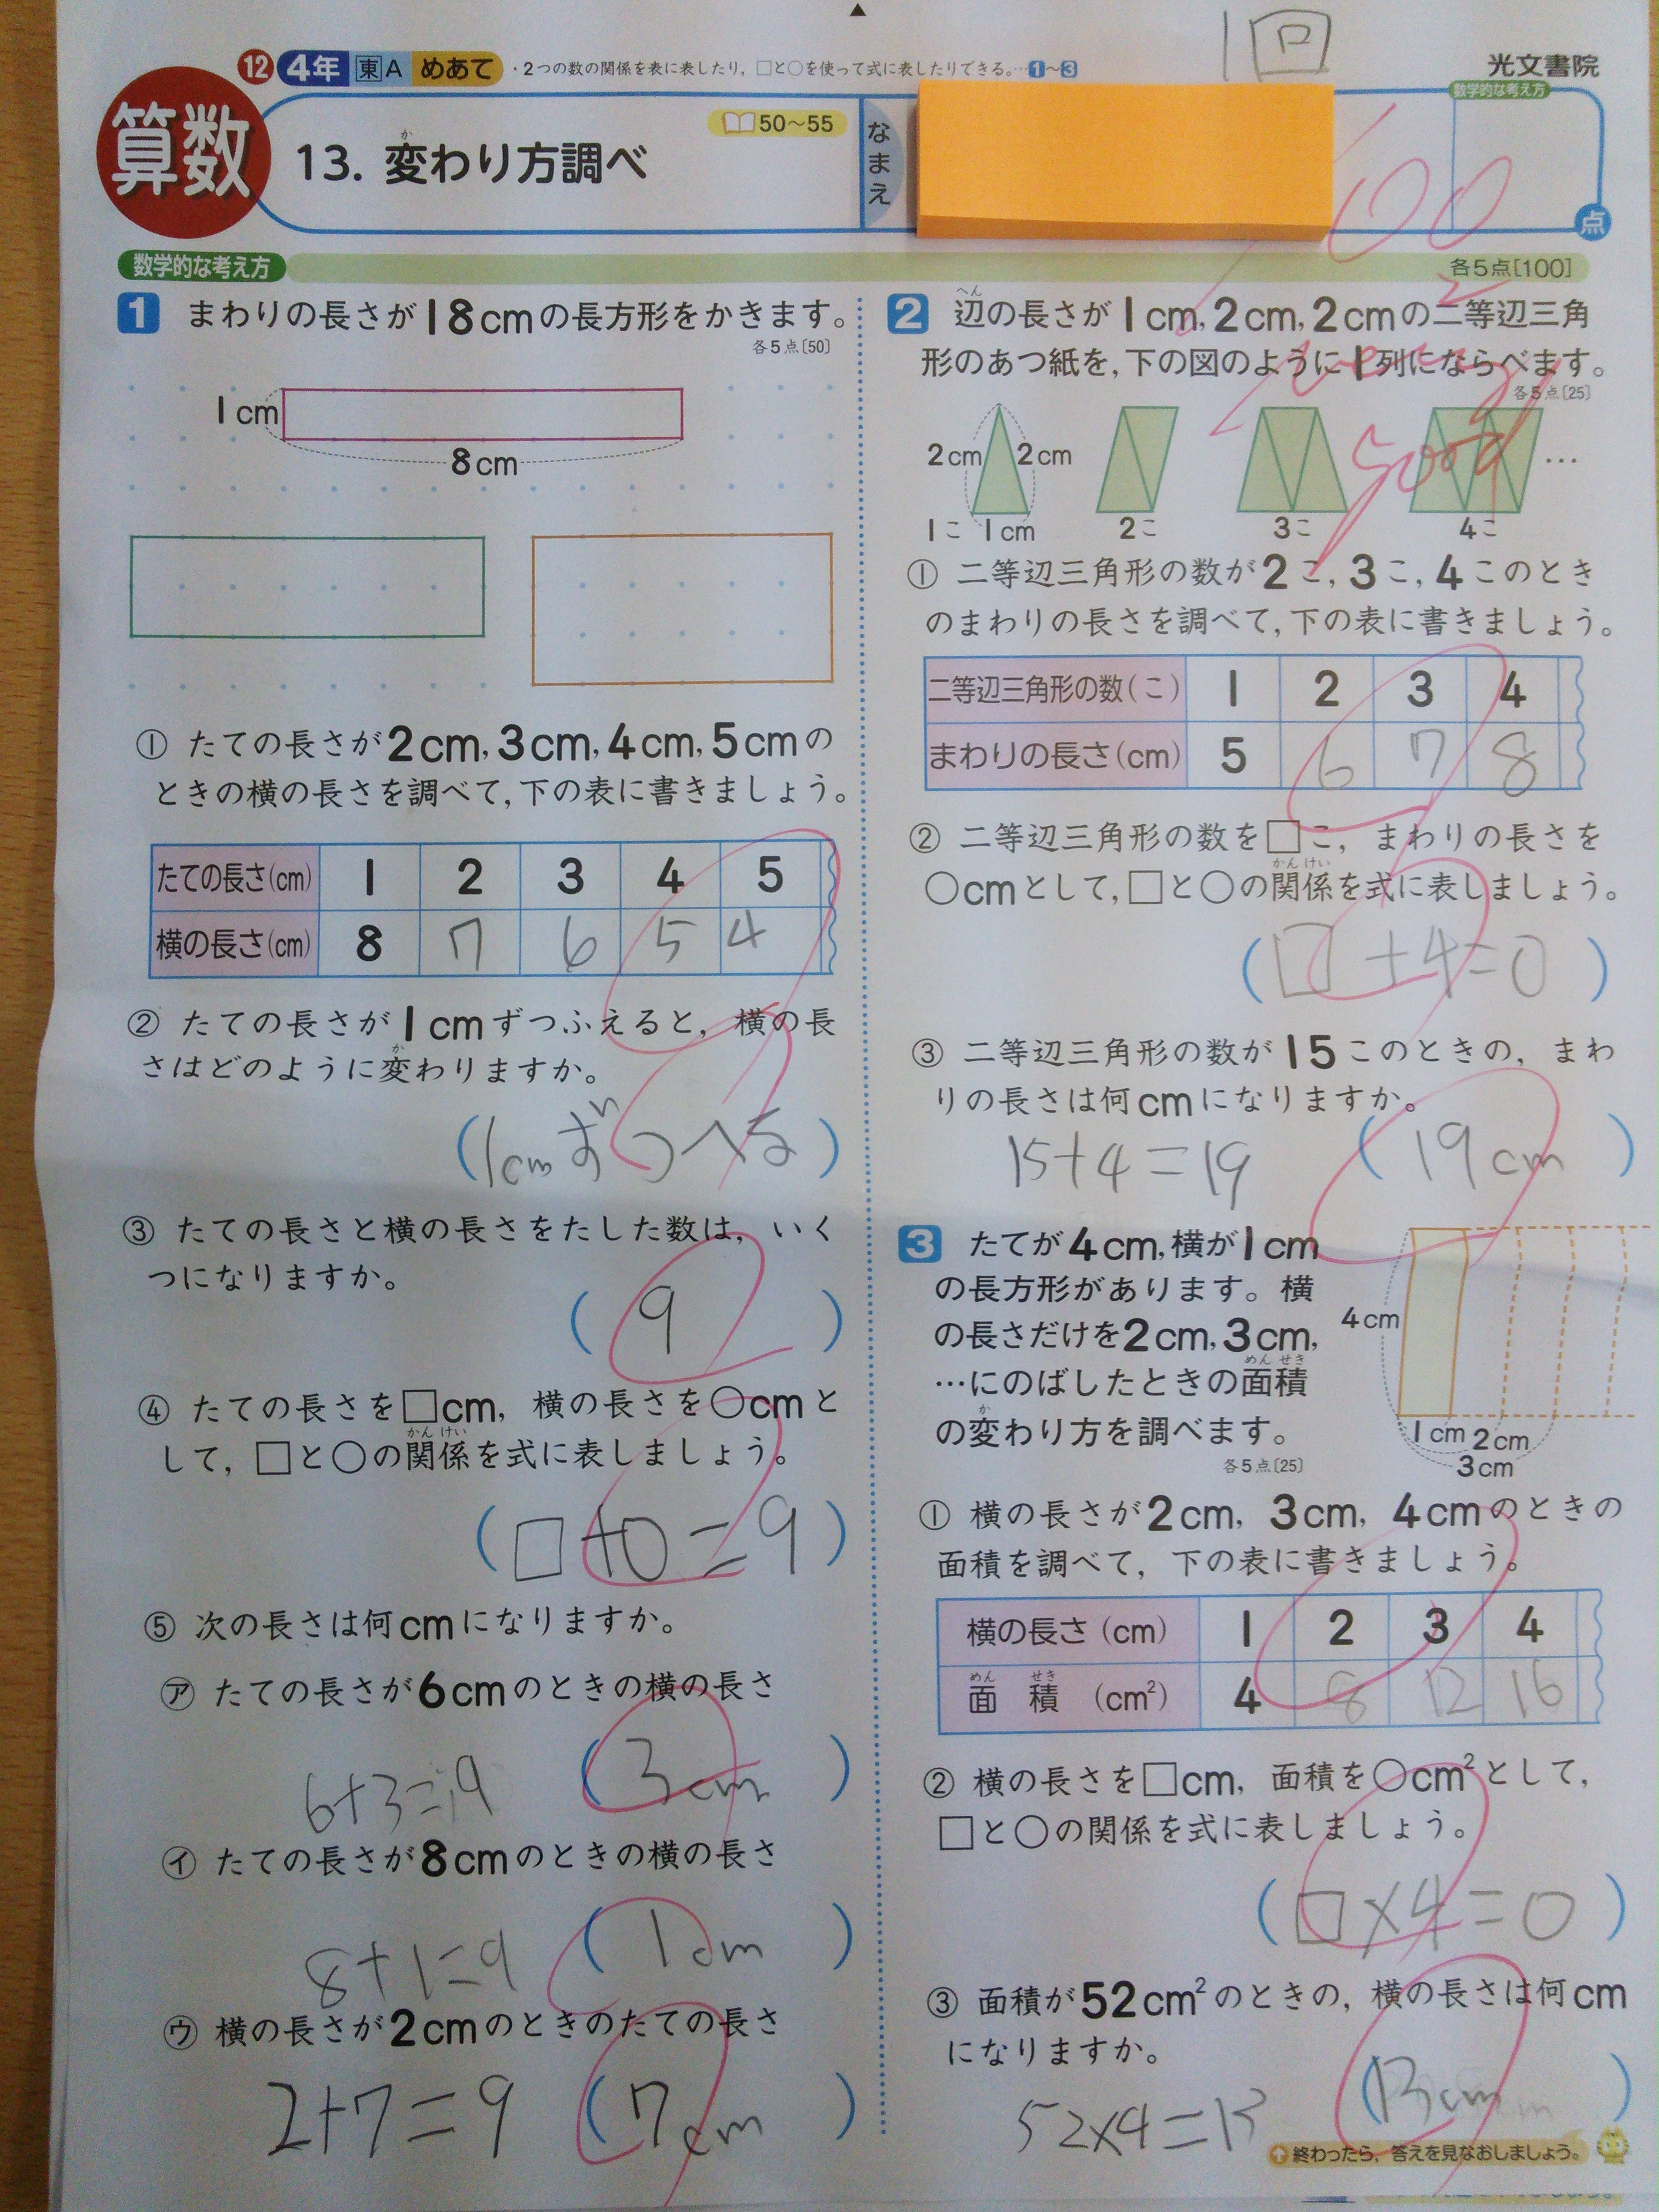 1回
⑫ 4年 東A めあて ・2つの数の関係を表に表したり，□と○を使って式に表したりできる。…1～3
光文書院
算数
13. 変わり方調べ
か
50～55
なまえ
数学的な考え方
100
点
数学的な考え方
各5点[100]
1 まわりの長さが18cmの長方形をかきます。
各5点[50]
1cm
8cm
① たての長さが2cm, 3cm, 4cm, 5cmの
ときの横の長さを調べて，下の表に書きましょう。
たての長さ(cm) 1 2 3 4 5
横の長さ(cm) 8 7 6 5 4
② たての長さが1cmずつふえると，横の長
さはどのように変わりますか。
か
(1cmずつへる)
③ たての長さと横の長さをたした数は，いく
つになりますか。
(9)
④ たての長さを□cm，横の長さを○cmと
して，□と○の関係を式に表しましょう。
かんけい
(□+○=9)
⑤ 次の長さは何cmになりますか。
㋐ たての長さが6cmのときの横の長さ
6+3=9 (3cm)
㋑ たての長さが8cmのときの横の長さ
8+1=9 (1cm)
㋒ 横の長さが2cmのときのたての長さ
2+7=9 (7cm)
2 辺の長さが1cm, 2cm, 2cmの二等辺三角
へん
形のあつ紙を，下の図のように1列にならべます。
各5点[25]
good
2cm 2cm
…
1こ 1cm 2こ 3こ 4こ
① 二等辺三角形の数が2こ, 3こ, 4このとき
のまわりの長さを調べて，下の表に書きましょう。
二等辺三角形の数(こ) 1 2 3 4
まわりの長さ(cm) 5 6 7 8
② 二等辺三角形の数を□こ，まわりの長さを
○cmとして，□と○の関係を式に表しましょう。
かんけい
(□+4=○)
③ 二等辺三角形の数が15このときの，まわ
りの長さは何cmになりますか。
15+4=19 (19cm)
3 たてが4cm, 横が1cm
の長方形があります。横
の長さだけを2cm, 3cm,
…にのばしたときの面積
めんせき
の変わり方を調べます。
か
各5点[25]
4cm
1cm 2cm
3cm
① 横の長さが2cm，3cm，4cmのときの
面積を調べて，下の表に書きましょう。
横の長さ(cm) 1 2 3 4
面積(cm²) 4 8 12 16
めんせき
② 横の長さを□cm，面積を○cm²として，
□と○の関係を式に表しましょう。
(□×4=○)
③ 面積が52cm²のときの，横の長さは何cm
になりますか。
52×4=13 (13cm)
終わったら，答えを見なおしましょう。